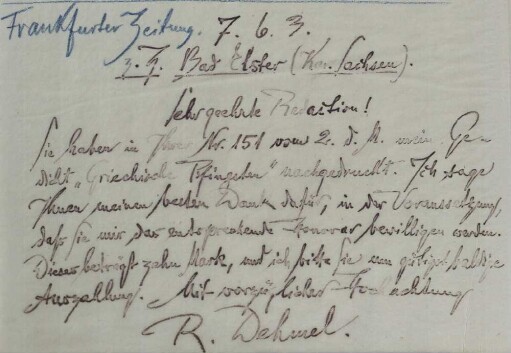 Frankfurter Zeitung. 7. 6. 3.
z. Z. Bad Elster (Kgr. Sachsen).
Sehr geehrte Redaction!
Sie haben in Ihrer Nr. 151 vom 2. d. M. mein Ge-
dicht „Griechische Pfingsten“ nachgedruckt. Ich sage
Ihnen meinen besten Dank dafür, in der Voraussetzung,
daß Sie mir das entsprechende Honorar bewilligen werden.
Dieses beträgt zehn Mark, und ich bitte Sie um gütigst baldige
Auszahlung. Mit vorzüglicher Hochachtung
R. Dehmel.